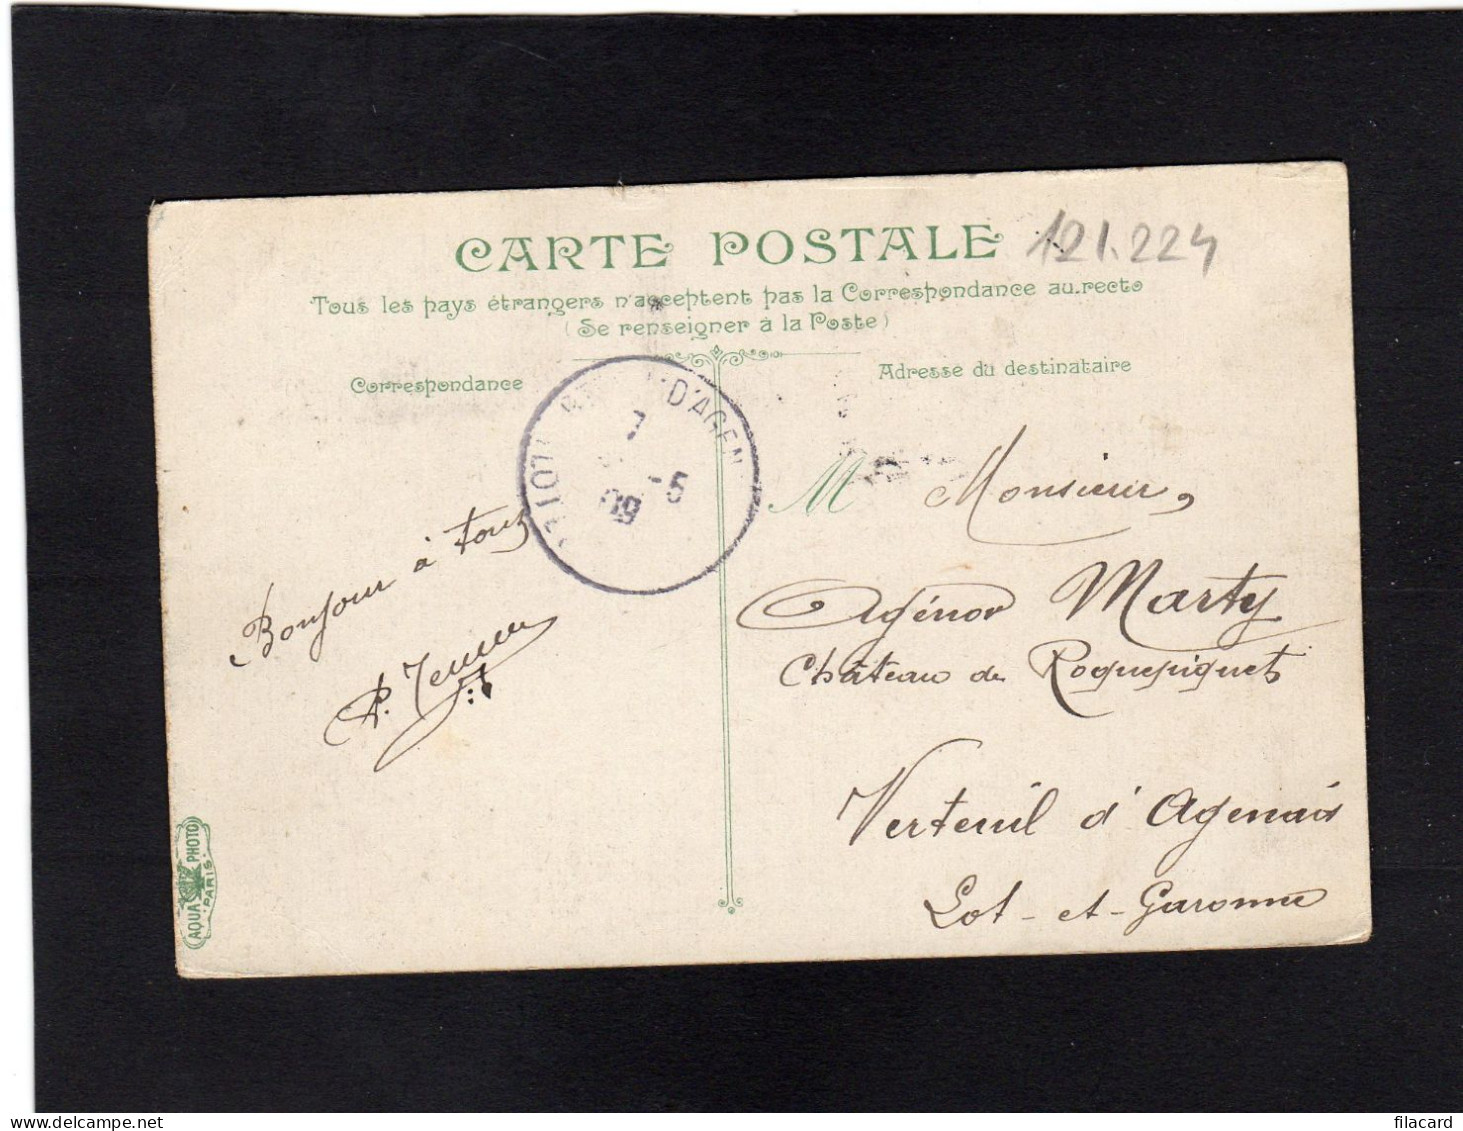 CARTE POSTALE 121.224
Tous les pays étrangers n'acceptent pas la Correspondance au recto
(Se renseigner à la Poste)
Correspondance
Adresse du destinataire
D'AGEN
7
-5
09
M Monsieur,
Agénor Marty
Château de Roquepiquet
Verteuil d'Agenais
Lot-et-Garonne
Bonjour à tous
AQUA PHOTO
PARIS
filacard